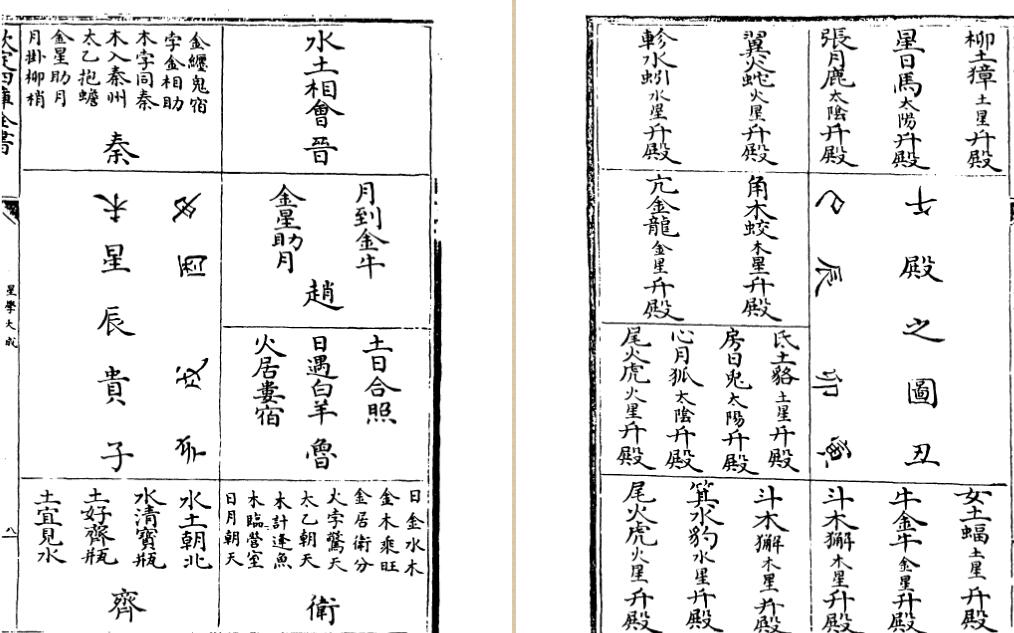 柳土獐土星升殿
星日馬太陽升殿
張月鹿太陰升殿
翼火蛇火星升殿
軫水蚓水星升殿
殿之圖丑
巳辰卯寅
角木蛟木星升殿
亢金龍金星升殿
氐土貉土星升殿
房日兔太陽升殿
心月狐太陰升殿
尾火虎火星升殿
女土蝠土星升殿
牛金牛金星升殿
斗木獬木星升殿
斗木獬木星升殿
箕水豹水星升殿
尾火虎火星升殿
水土相會晉
金纏鬼宿
孛金相助
木孛同秦
木入秦州
太乙抱蟾
金星助月
月掛柳梢
秦
月到金牛
金星助月
趙
土日合照
日遇白羊
火居婁宿
魯
酉戌亥
未星辰貴子
日金水木
金木乘旺
金居衛分
火孛驚天
太乙朝天
木計逢魚
木臨營室
日月朝天
衛
水土朝北
水清寶瓶
土好齊瓶
土宜見水
齊
欽定四庫全書
星學大成
八